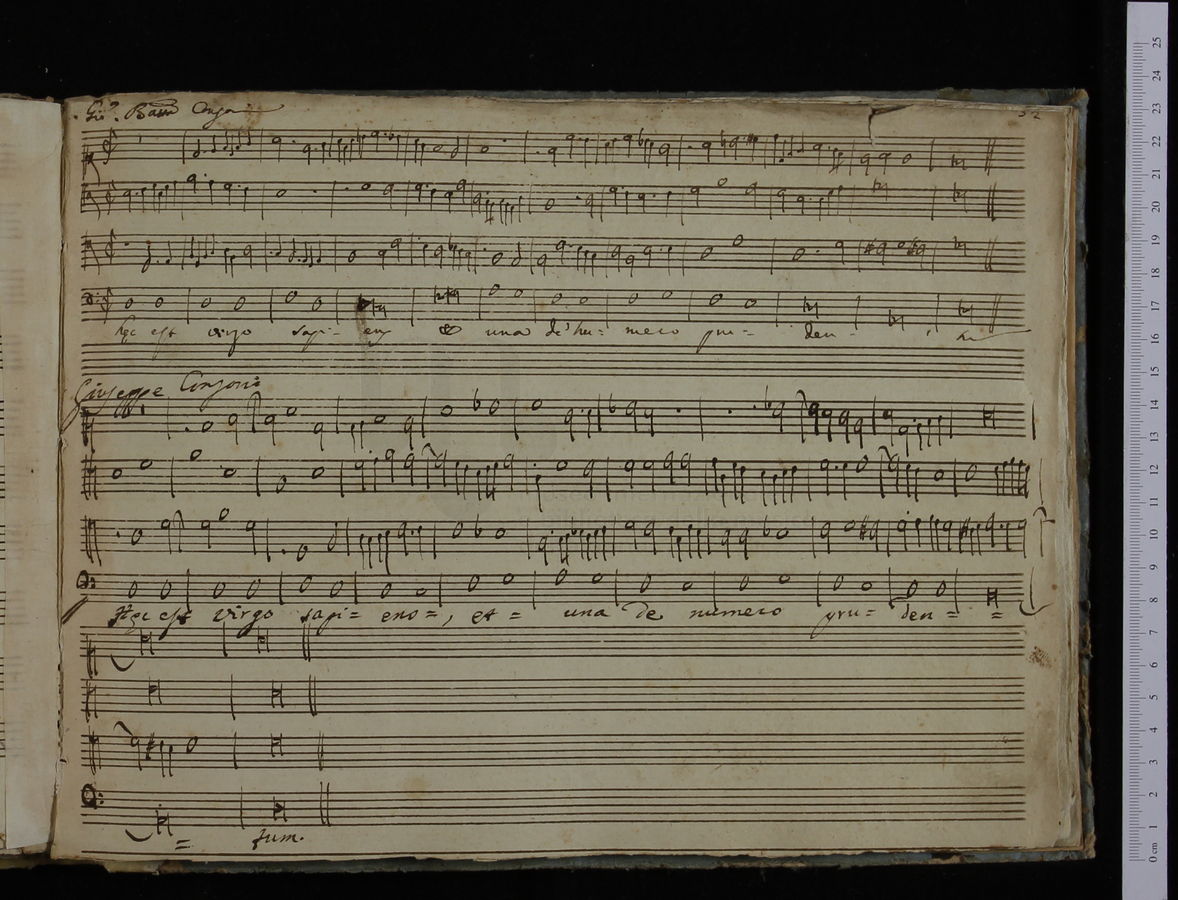 Gio. Batta
32
Hęc est virgo sapi= ens & una de' nu= mero pru= den-
Giuseppe Consoni
Hęc est virgo sapi= ens=, et= una De numero pru= den= =
= tum.
0 cm 1 2 3 4 5 6 7 8 9 10 11 12 13 14 15 16 17 18 19 20 21 22 23 24 25